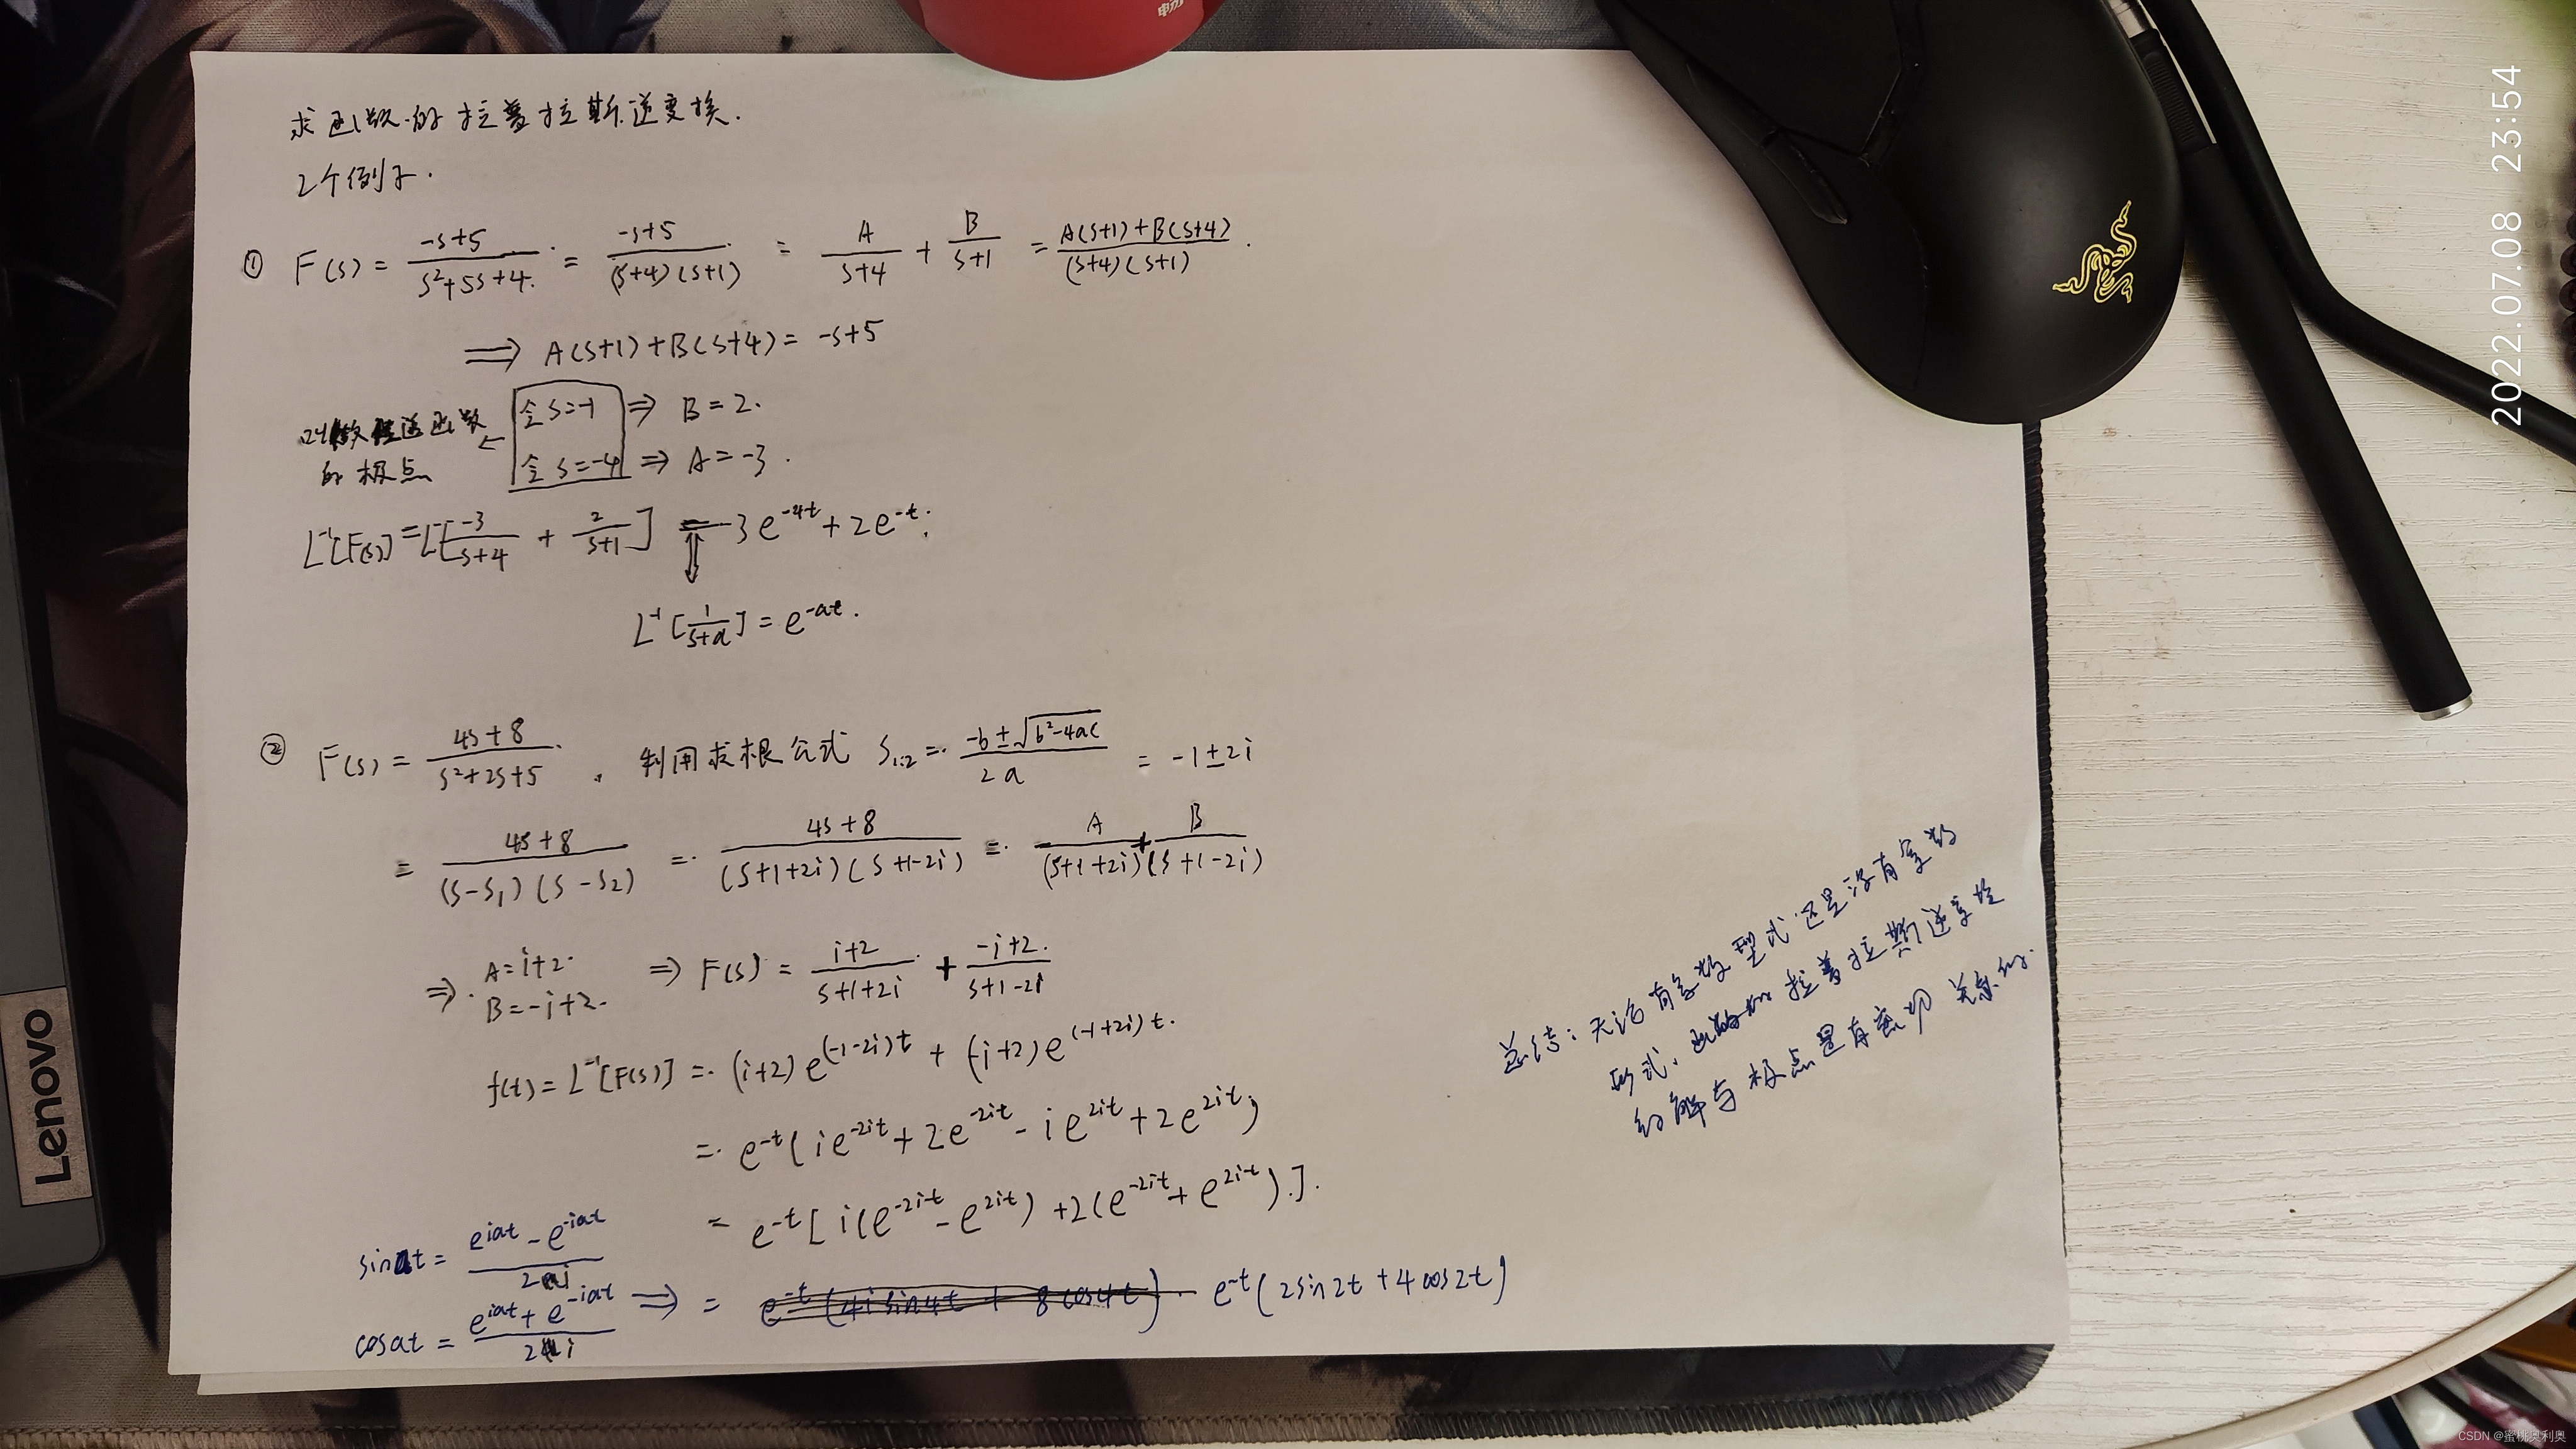 求函数的拉普拉斯逆变换.
2个例子.
① F(s) = \frac{-s+5}{s²+5s+4} = \frac{-s+5}{(s+4)(s+1)} = \frac{A}{s+4} + \frac{B}{s+1} = \frac{A(s+1)+B(s+4)}{(s+4)(s+1)}.
⟹ A(s+1)+B(s+4) = -s+5
令 s=-1 ⇒ B=2.
令 s=-4 ⇒ A=-3.
递函数
的极点 ←
L⁻¹[F(s)] = L⁻¹[\frac{-3}{s+4} + \frac{2}{s+1}] = -3e^{-4t} + 2e^{-t};
L⁻¹[\frac{1}{s+a}] = e^{-at}.
② F(s) = \frac{4s+8}{s²+2s+5}, 利用求根公式 S_{1,2} = \frac{-b±\sqrt{b²-4ac}}{2a} = -1±2i
= \frac{4s+8}{(s-s₁)(s-s₂)} = \frac{4s+8}{(s+1+2i)(s+1-2i)} = \frac{A}{(s+1+2i)} + \frac{B}{(s+1-2i)}
⇒ A=i+2.
B=-i+2.
⇒ F(s) = \frac{i+2}{s+1+2i} + \frac{-i+2}{s+1-2i}
f(t) = L⁻¹[F(s)] = (i+2)e^{(-1-2i)t} + (-i+2)e^{(-1+2i)t}.
= e^{-t}(ie^{-2it} + 2e^{-2it} - ie^{2it} + 2e^{2it})
= e^{-t}[i(e^{-2it} - e^{2it}) + 2(e^{-2it} + e^{2it})].
sinat = \frac{e^{iat} - e^{-iat}}{2i}
cosat = \frac{e^{iat} + e^{-iat}}{2i}
⟹ = e^{-t}(4i sin4t + 8cos4t) e^{-t}(2sin2t + 4cos2t)
总结: 无论有实数型式还是没有实数
形式, 函数的拉普拉斯逆变换
的解与极点是有密切关系的.
Lenovo
2022.07.08 23:54
CSDN @蜜桃奥利奥